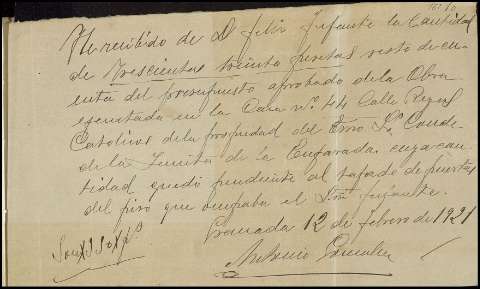 He recibido de D. Felix Infante la Cantidad
de Trescientas treinta pesetas resto de cu-
enta del presupuesto aprobado de la Obra
ejecutada en la Casa nº 44 Calle Reyes
Catolicos de la propiedad del Exmo Sr Conde
de la Jura de la Enjarada, cuya can
tidad quedó pendiente al tapado de puertas
del piso que ocupaba el Sr Infante.
Granada 12 de febrero de 1921
Son
Antonio